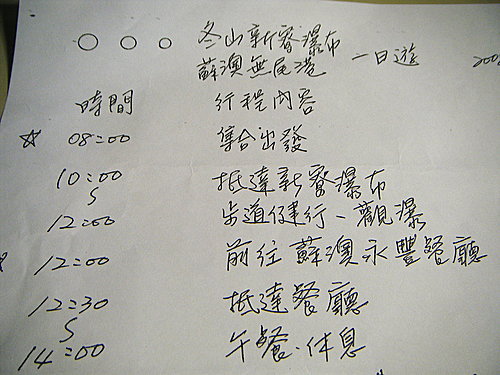 ○ ○ ○ 冬山新寮瀑布
蘇澳無尾港 一日遊 200
時間 行程內容
☆ 08:00 集合出發
10:00 抵達新寮瀑布
S
12:00 步道健行-觀瀑
12:00 前往蘇澳永豐餐廳
12:30 抵達餐廳
S
14:00 午餐.休息